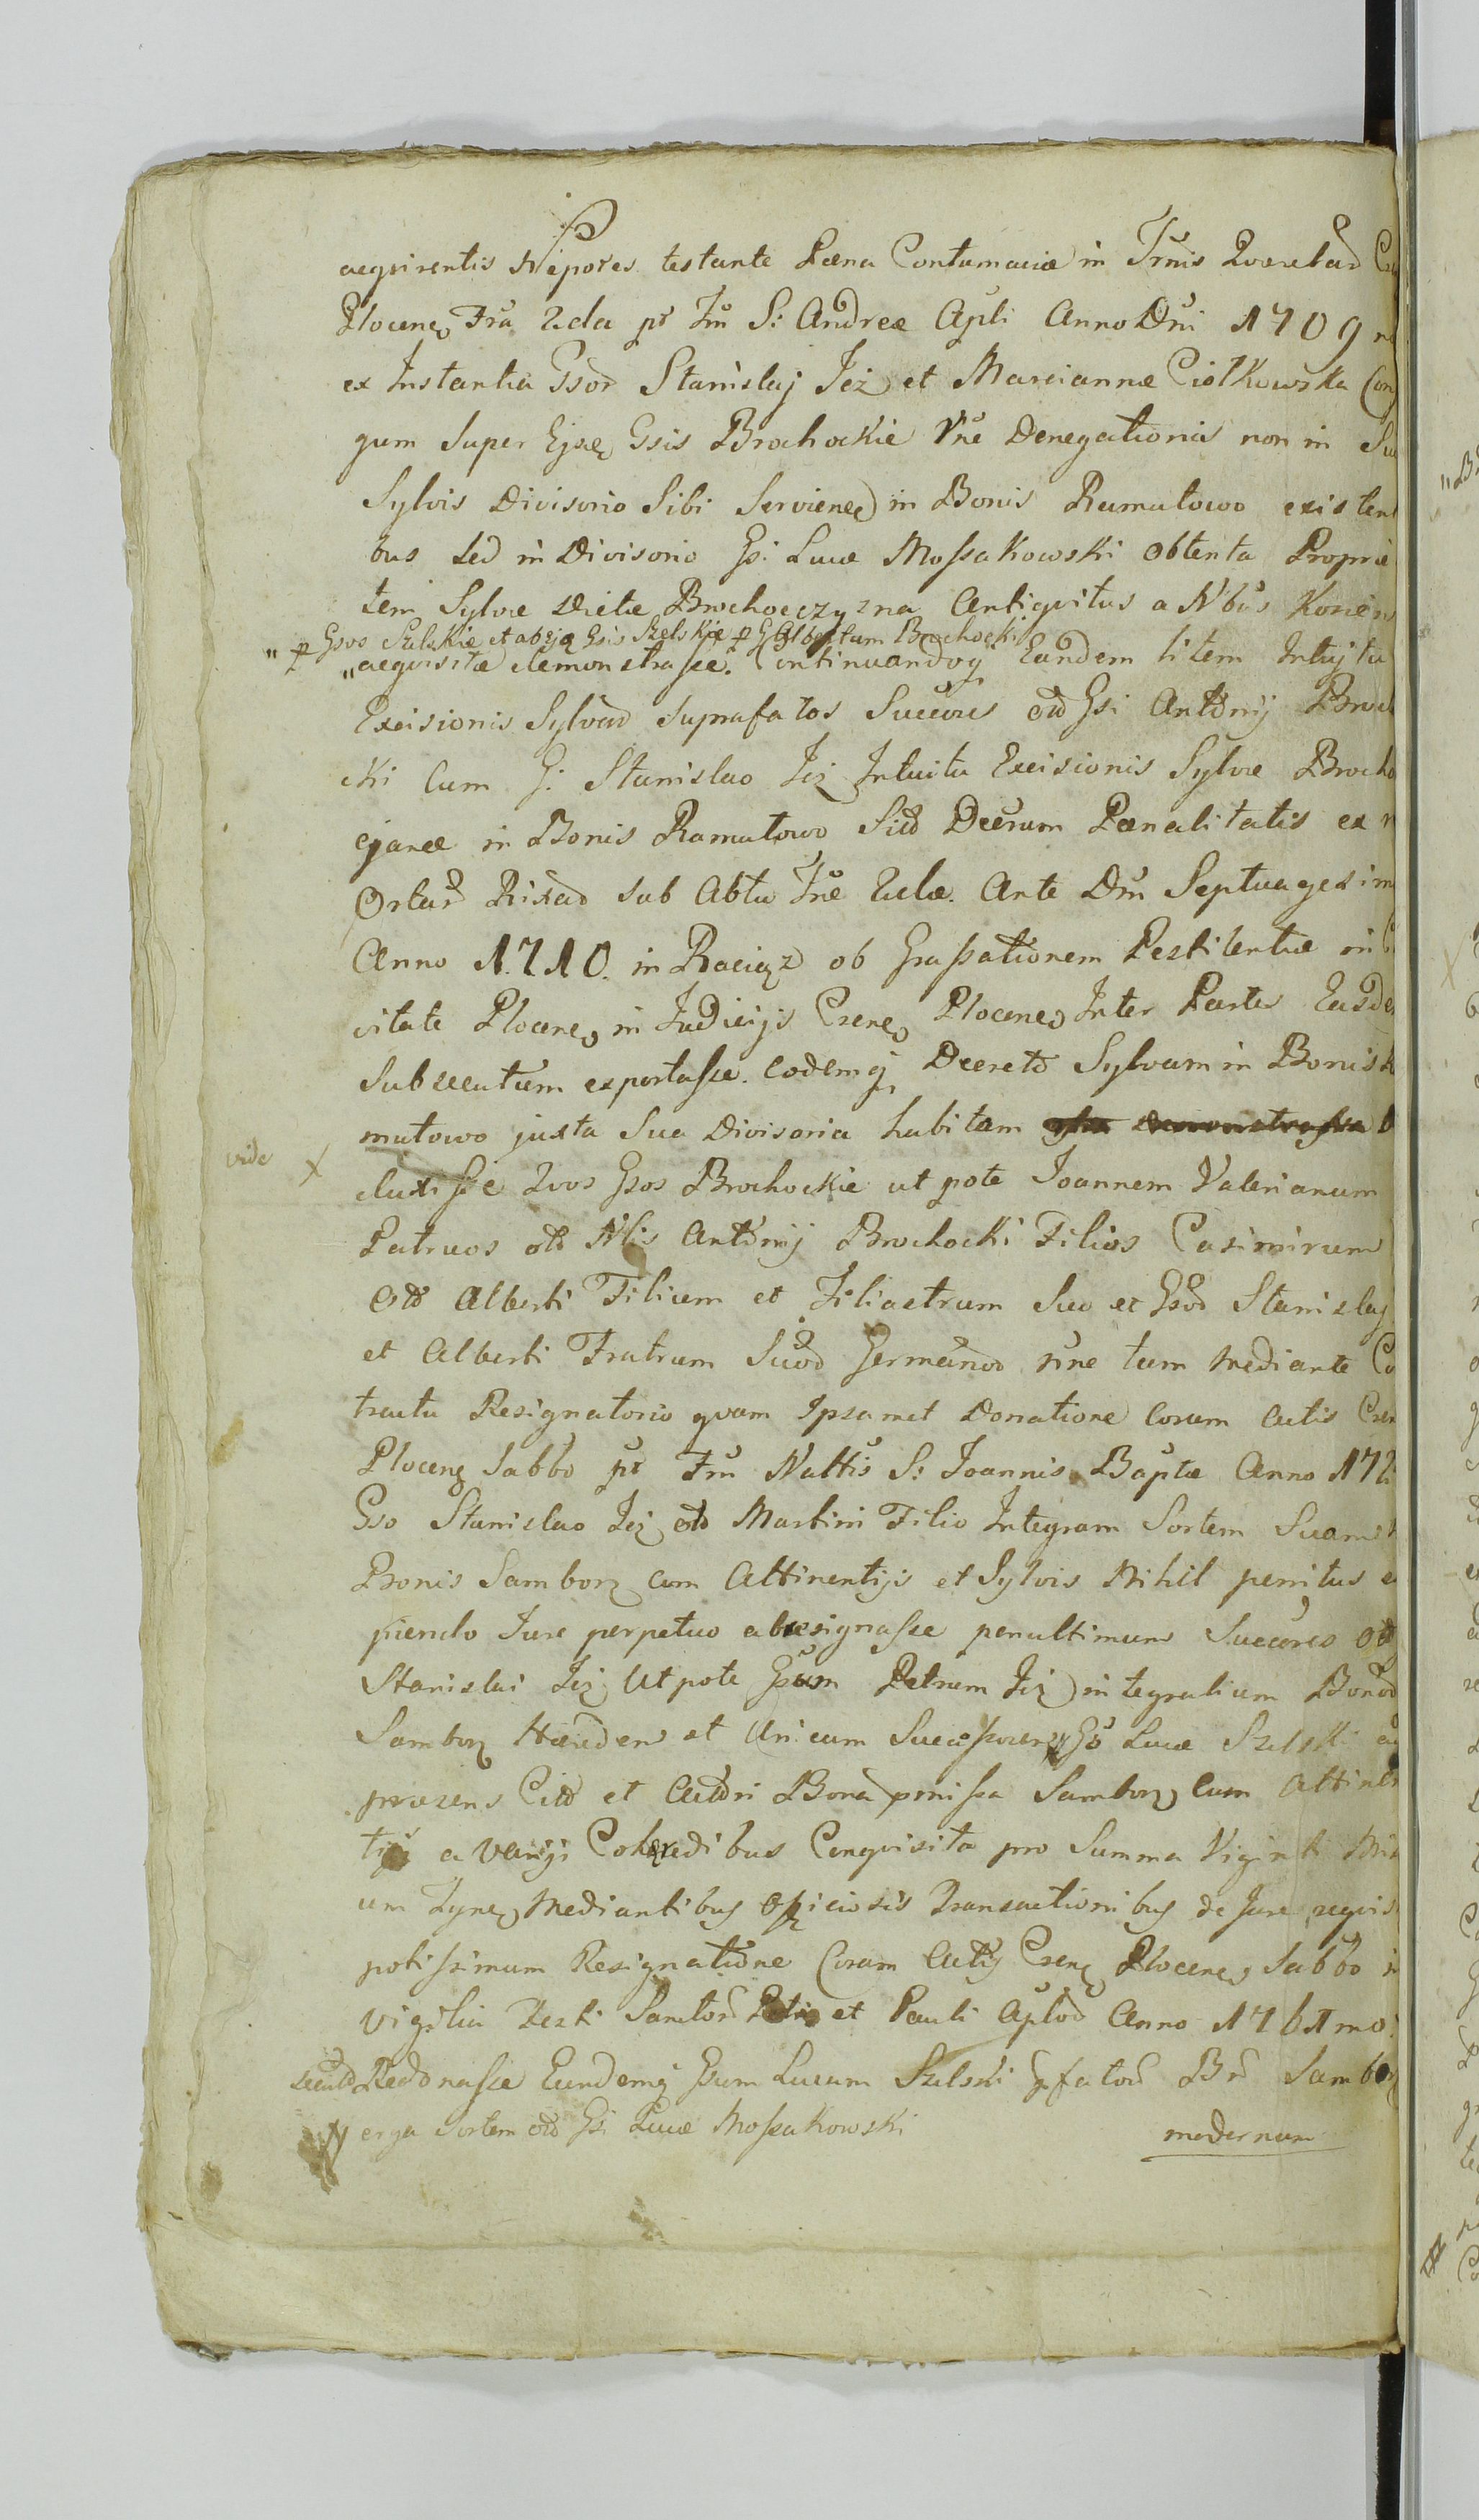 aeqvirentis Nepotes testante Paena Contumaciae in Trnis Qverelar̃
Plocen. Fria 2cla pt Fm S: Andreae Apli Anno Dni 1709
ex Instantia Gsor Stanislaj Jeż et Mareiannae Ciołkowska Con
gum Super Ejsdę Gsis Brochockie Vne Denegationis non in Su
Sylvis Divisorio Sibi Servienę in Bonis Ramutowo existen
bus Sed in Divisorio Gsi Lucae Mossakowski obtenta Proprie
tem Sylvae dictae Brochoczyzna Antiqvitus a Nbus Konien
" p Gsos Szelskie et ab ejsdę Gsis Szelskie p G Albertum Brochocki
"aeqvisitae demonstrasse. Continuandoq Eandem litem Intujtu
Excisionis Sylvar̃ suprafatos Succores oĩd Gsi Antõnij Broch
cki Cum G: Stanislao Jeż Intuitu Excisionis Sylvae Brocho
cjanae in Bonis Ramutowo Sicõ Decrum Paenalitatis ex
Ortar̃ Rixar̃ sub Actu Fne 2clae. Ante Dm Septuagesim
Anno 1710. in Raciąz ob Grassationem Pestilentiae in
vitate Plocen. in Judicijs Csren. Plocen. Inter Partes Easde
Subsecutum exportasse. Eodemq Decretõ Sylvam in Bonis
mutowo juxta Sua Divisoria habitam
vide X duxisse 2vos Gsos Brochockie utpote Joannem Valerianum
Patruos oĩd Nlis Antõnij Brochocki Filios Casimirum
oĩd Alberti Filium et Filiastrum Suo et Gsor̃ Stanislaj
et Alberti Fratrum Suor̃ Germanor̃ nne tum mediante Co
tractu Resignatorio qvam Ipsamet Donatione Coram Actis Csren
Plocenę Sabbo pt Fm Nattis S: Joannis Baptae Anno 172
Gso Stanislao Jeż oĩd Martini Filio Integram Sortem Suam
Bonis Samborz cum Attinentijs et Sylvis Nihil penitus e
piendo Jure perpetuo abresignasse penultimum Succores oĩd
Stanislai Jeż Utpote Gsum Petrum Jeż integralium Bonor̃
Samborz Haeredem et Unicum Successorem Gso Lucae Szelski
praesens Citõ et Actõri Bona pmissa Samborz Cum Attinen
tijs a Varijs Cohaeredibus Conqvisita pro Summa Viginti Mil
um Tynf. Mediantibus Officiosis Transactionibus de Jure reqvis
potissimum Resignatione Coram Actis Csrenę Plocen. Sabbo in
Vigilia Festi Sanctor̃ Petri et Pauli Aplor̃ Anno 1761mo
Redonasse Eundemq Gsum Lucam Szelski pfator̃ Br̃ Samborz
erga Sortem oĩd Gsi Lucae Mossakowski
modernum